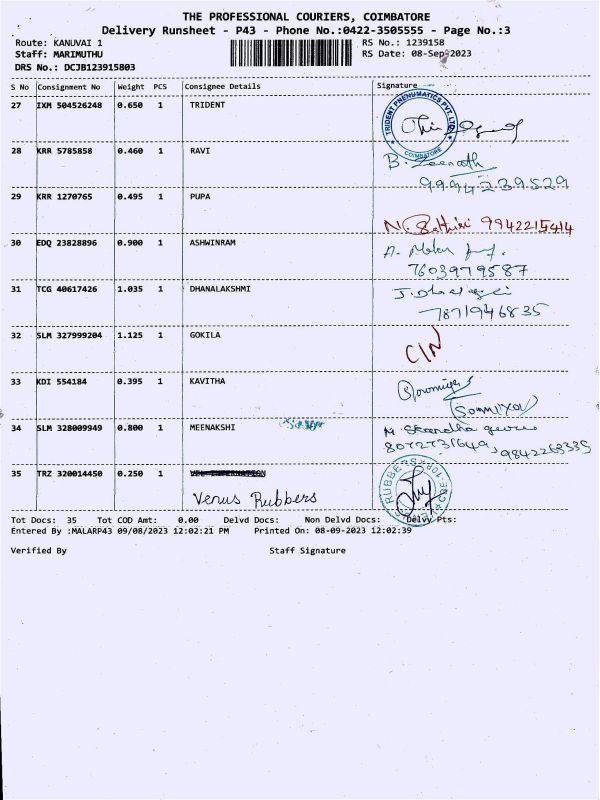 THE PROFESSIONAL COURIERS, COIMBATORE
Delivery Runsheet - P43 - Phone No.:0422-3505555 - Page No.:3
Route: KANUVAI 1 RS No.: 1239158
Staff: MARIMUTHU RS Date: 08-Sep-2023
DRS No.: DCJB123915803
S No Consignment No Weight PCS Consignee Details Signature
27 IXM 504526248 0.650 1 TRIDENT
TRIDENT PNEUMATICS PVT. LTD. COIMBATORE
28 KRR 5785858 0.460 1 RAVI
9994239529
29 KRR 1270765 0.495 1 PUPA
9942215414
30 EDQ 23828896 0.900 1 ASHWINRAM
7603979587
31 TCG 40617426 1.035 1 DHANALAKSHMI
7871946835
32 SLM 327999204 1.125 1 GOKILA
C/N
33 KDI 554184 0.395 1 KAVITHA
(Sowmiya)
34 SLM 328009949 0.800 1 MEENAKSHI
35 TRZ 320014450 0.250 1
Venus Rubbers
Tot Docs: 35 Tot COD Amt: 0.00 Delvd Docs: Non Delvd Docs: Delvy Pts:
Entered By :MALARP43 09/08/2023 12:02:21 PM Printed On: 08-09-2023 12:02:39
Verified By Staff Signature